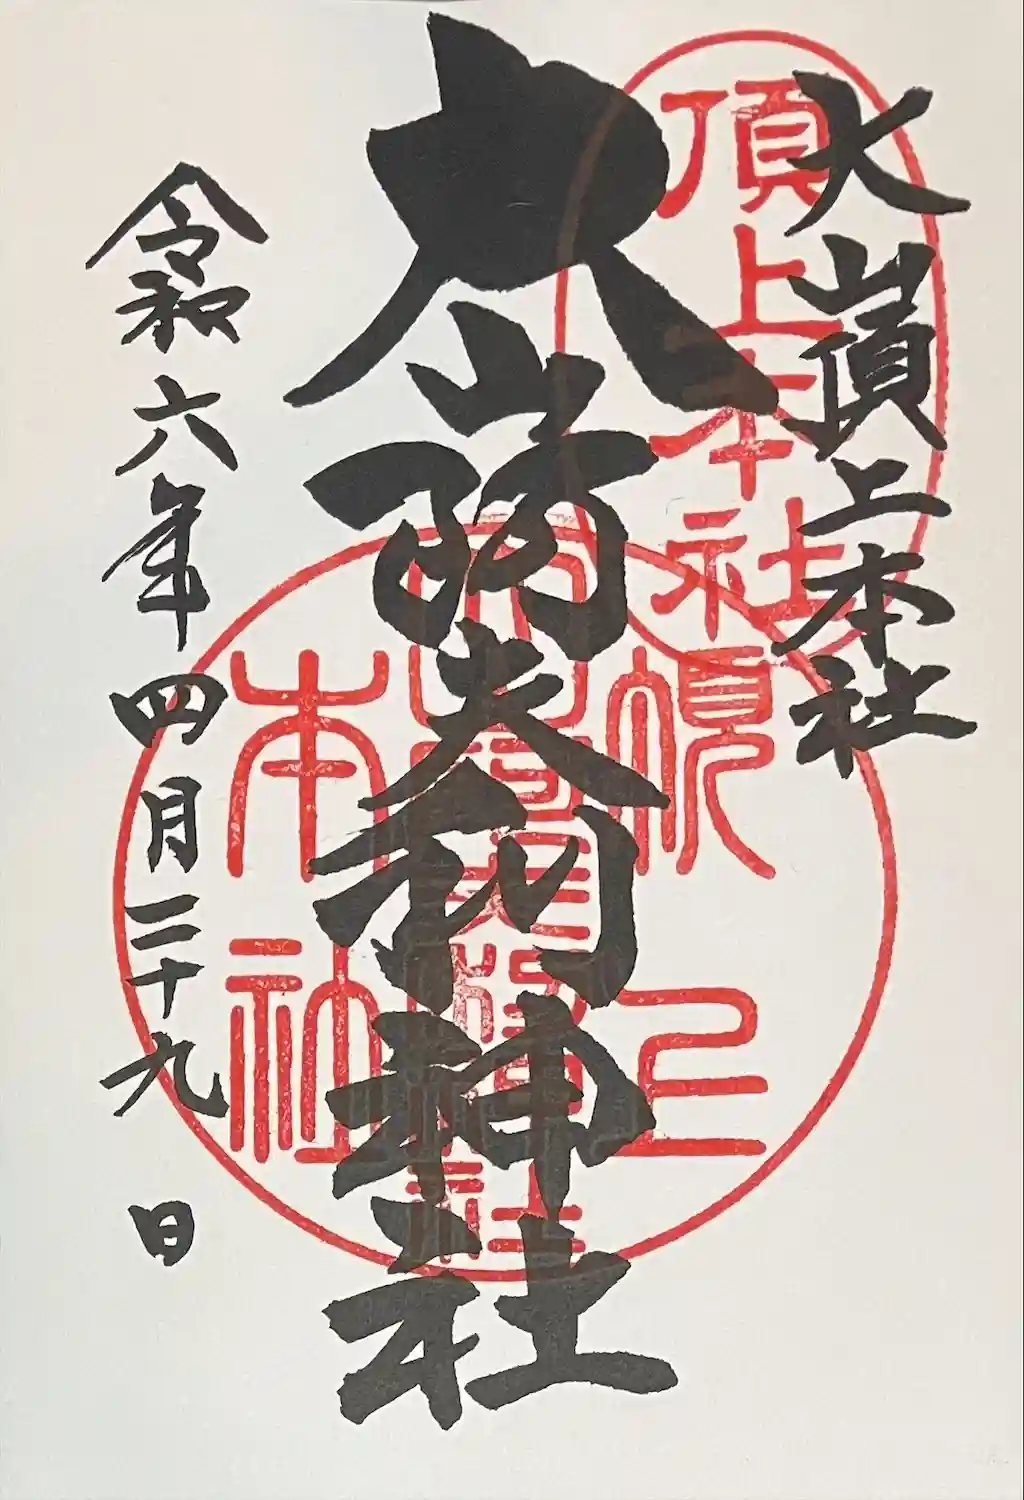 大山頂上本社
大山阿夫利神社
令和六年四月二十九日
頂上本社
頂上
大山阿夫利神社
本社